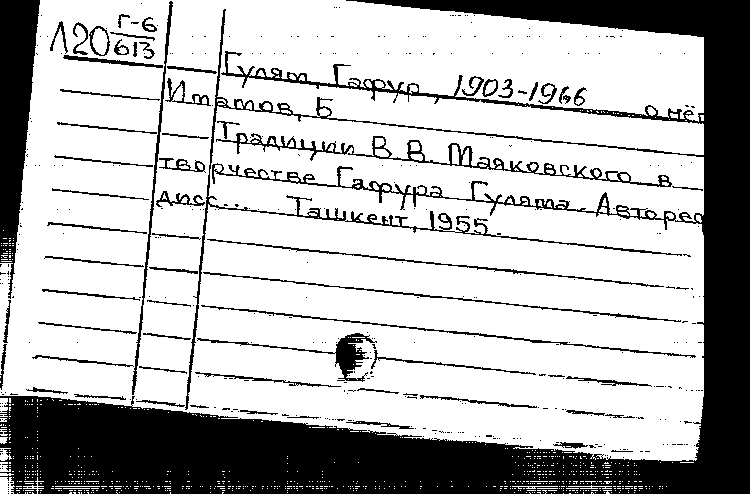 Л20 Г-6/613
Гулям, Гафур, 1903-1966 о нём
Иматов, Б
Традиции В.В. Маяковского в
творчестве Гафура Гуляма. Автореф
дисс... Ташкент, 1955.